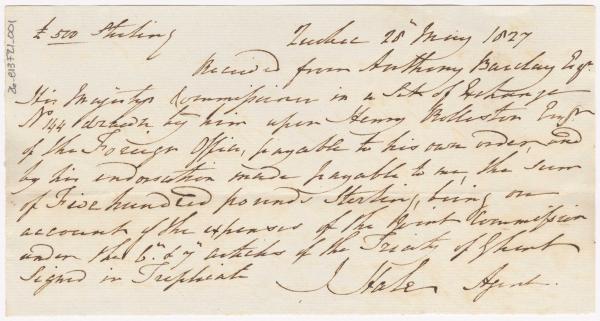 £ 500 Sterling Quebec 28th May 1827
Received from Anthony Barclay Esqr.
His Majesty's Commissioner in a Sett of Exchange
No 144 drawn by him upon Henry Rolleston Esqr
of the Foreign Office, payable to his own order, and
by his endorsation made payable to me, the sum
of Five hundred pounds Sterling, being on
account of the expenses of the Joint Commission
under the 6th & 7th articles of the Treaty of Ghent
Signed in Triplicate J Hale Agent.